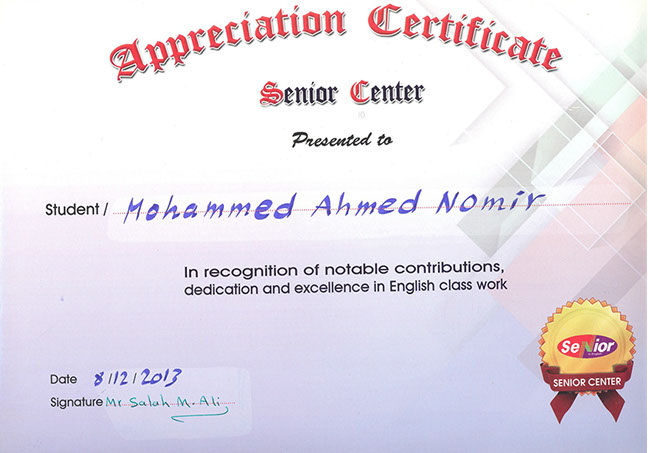 Appreciation Certificate
Senior Center
Presented to
Student / Mohammed Ahmed Nomir
In recognition of notable contributions,
dedication and excellence in English class work
Senior
SENIOR CENTER
Date 8/12/2013
Signature Mr Salah M. Ali